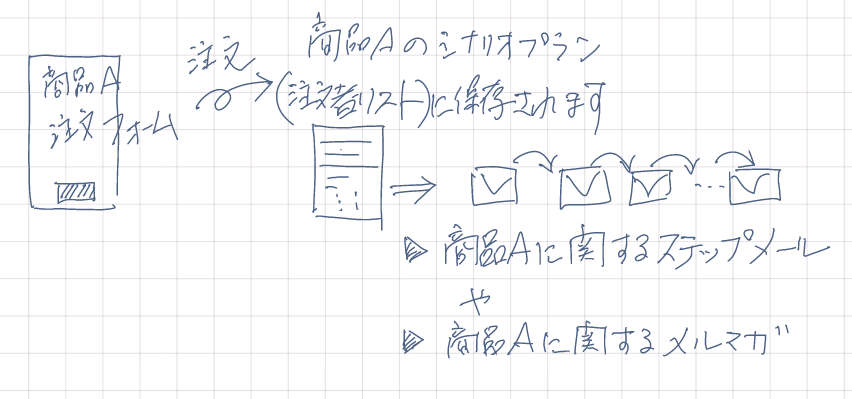 商品A
注文フォーム
注文
商品Aのシナリオプラン
(注文者リスト)に保存されます
▷ 商品Aに関するステップメール
や
▷ 商品Aに関するメルマガ